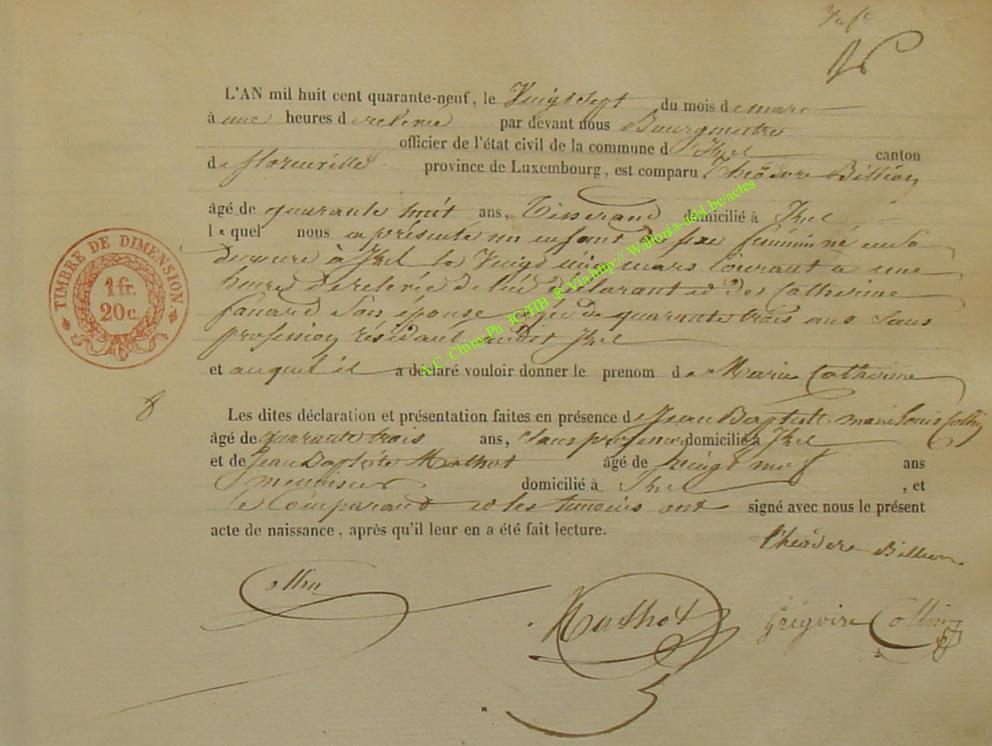 16
L'AN mil huit cent quarante-neuf, le Vingt Sept du mois de mars
à une heures de relevée par devant nous Bourgmestre
officier de l'état civil de la commune d'Izel canton
de florenville province de Luxembourg, est comparu Théodore Billion
âgé de quarante huit ans, Tisserand domicilié à Izel
lequel nous a présenté un enfant du sexe féminin né en sa
demeure à Izel le Vingt mars Courant a une
heures de relevée de lui déclarant et de Catherine
fanard Son épouse agée de quarante trois ans Sans
profession résidant audit Izel
et auquel il a déclaré vouloir donner le prenom de Marie Catherine
Les dites déclaration et présentation faites en présence de Jean Baptiste marie Louis Collin
âgé de quarante trois ans, Sans profession domicilié à Izel
et de Jean Baptiste Mathot âgé de Vingt neuf ans
meunier domicilié à Izel , et
le Comparant et les temoins ont signé avec nous le présent
acte de naissance, après qu'il leur en a été fait lecture.
Théodore Billion
Collin
Mathot
Grégoire Collin
TIMBRE DE DIMENSION
1 fr.
20 c.
A.C. Chiny Ph JC/HB @ Via http://Wallonia-asbl.be/actes